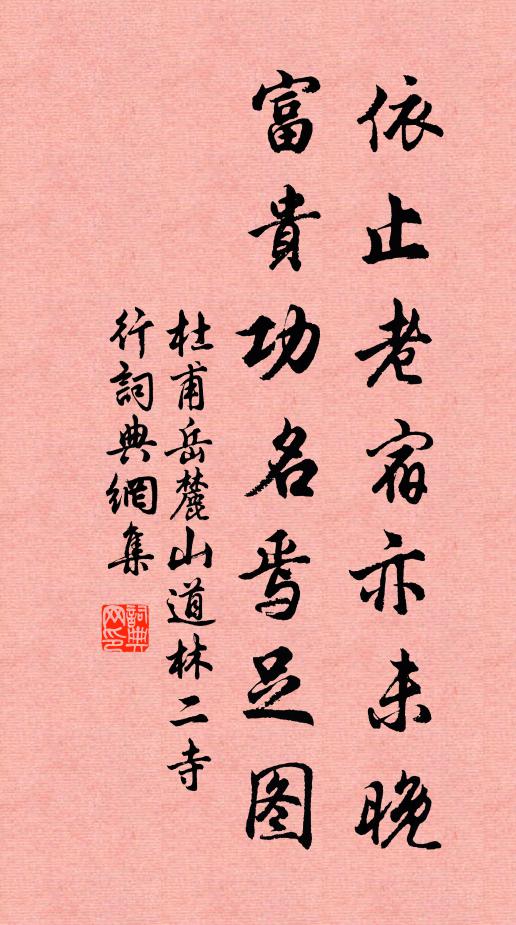 依止老宿亦未晚
富貴功名焉足图
杜甫岳麓山道林二寺
行詞典網集
詞典
网印